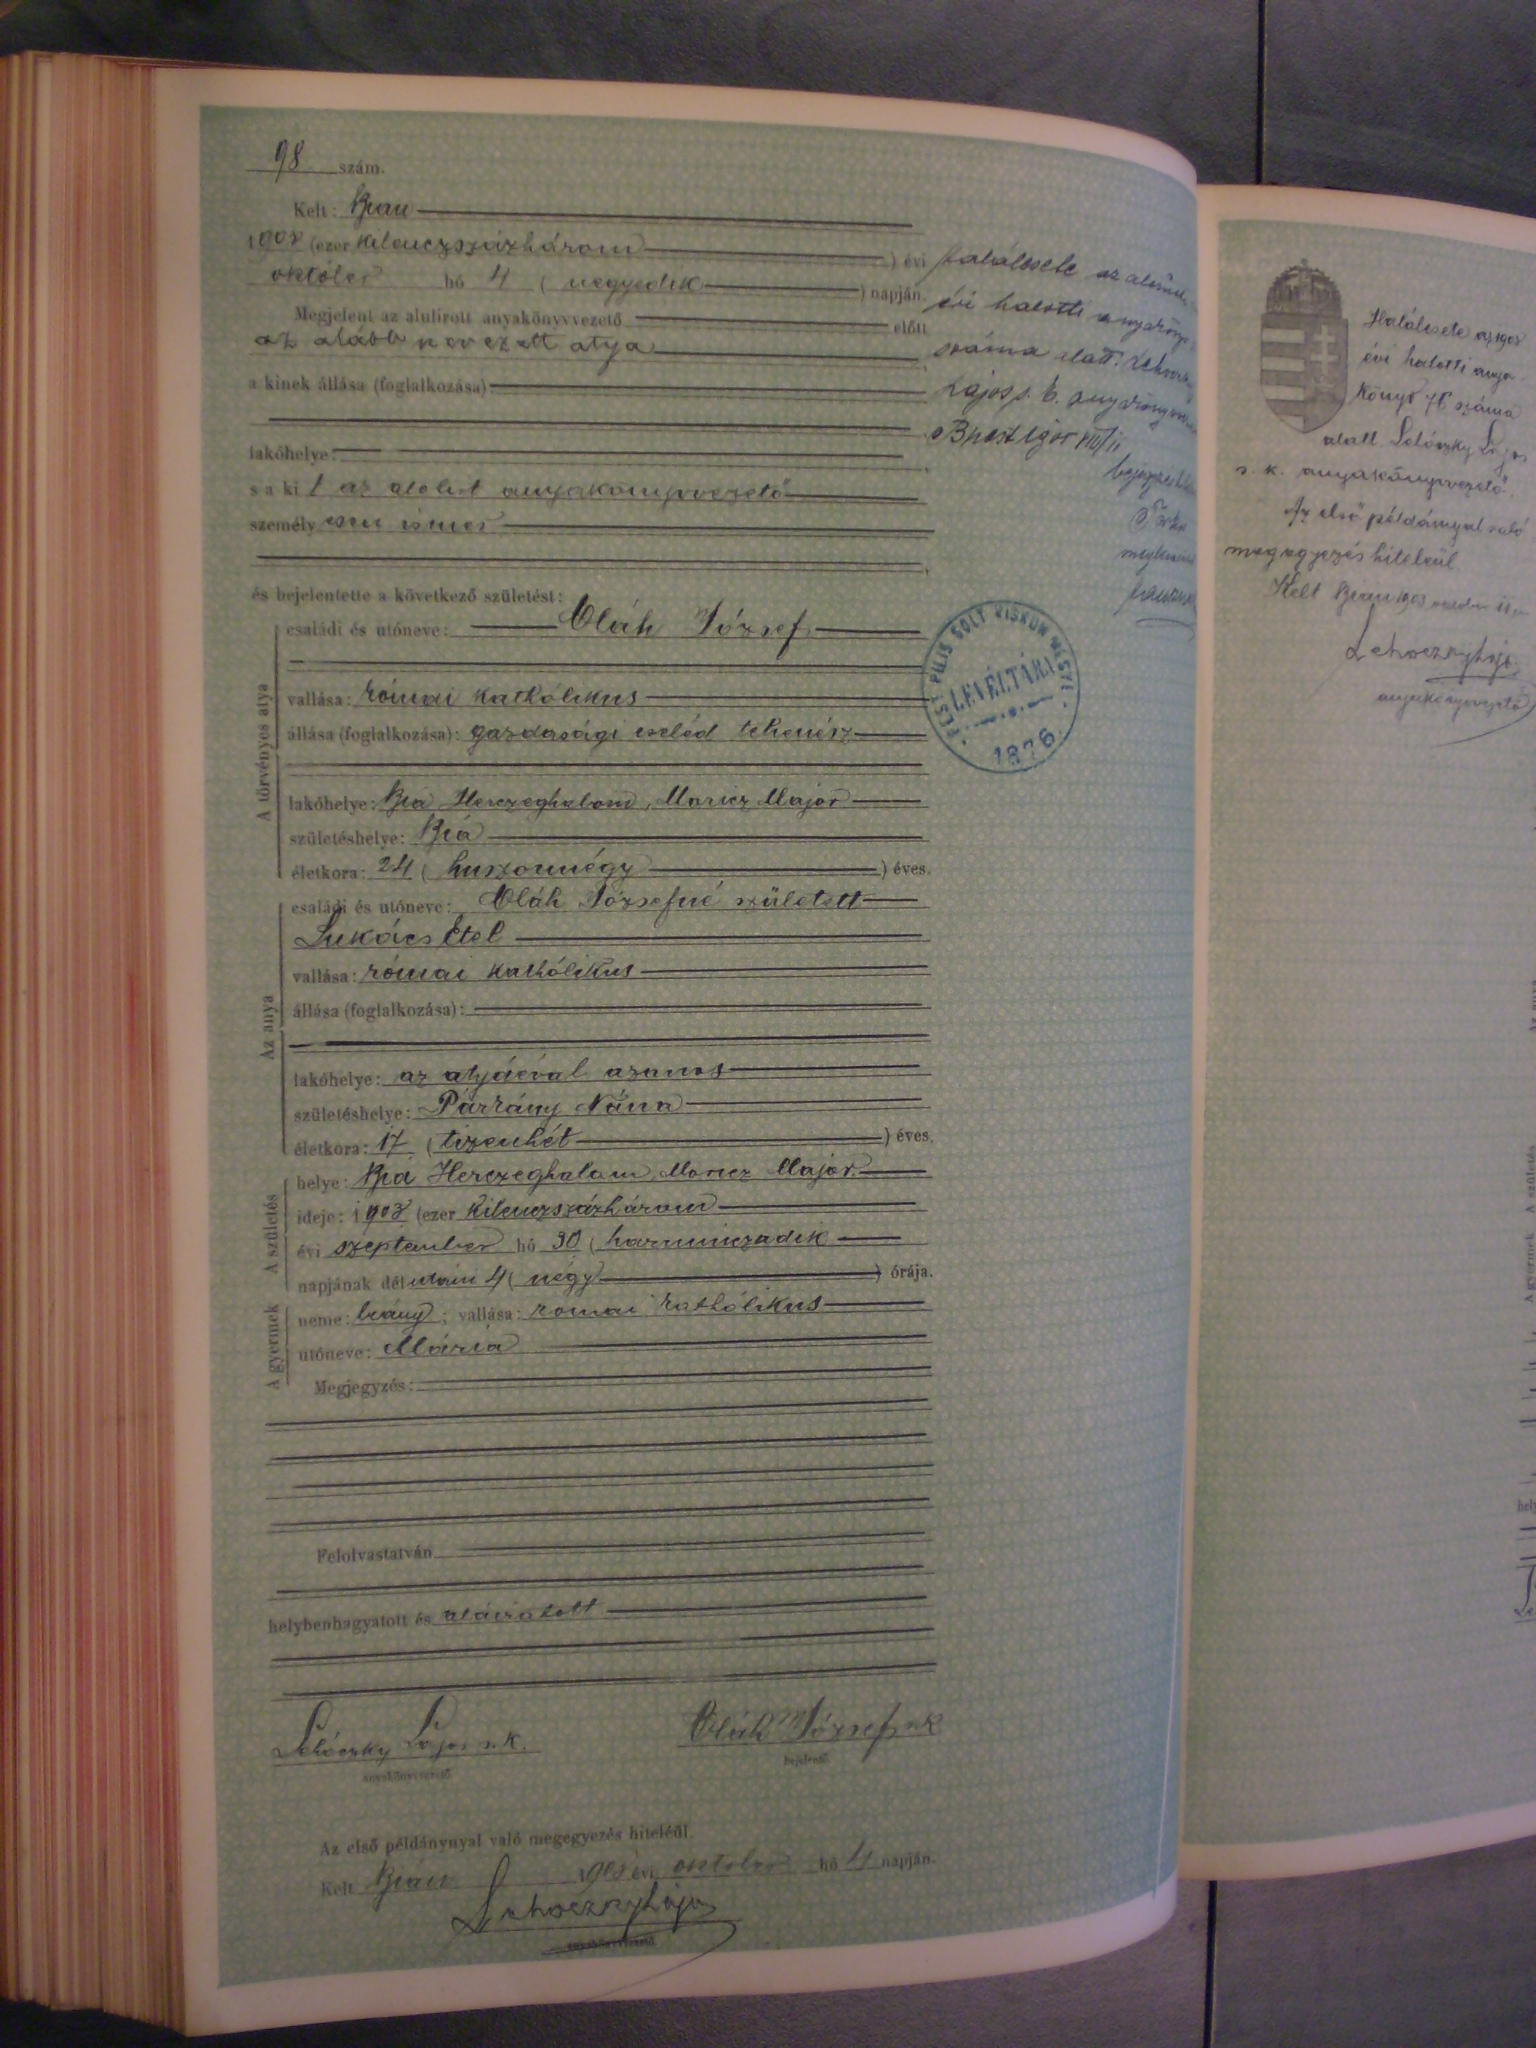 98 szám.
Kelt: Bián
1903 (ezer kilenczszázhárom ) évi
október hó 4 ( negyedik ) napján.
Megjelent az alulírott anyakönyvvezető előtt
az alább nevezett atya
a kinek állása (foglalkozása)
lakóhelye:
s a ki t az alulirt anyakönyvvezető
személyesen ismer
és bejelentette a következő születést:
A törvényes atya
családi és utóneve: Oláh József
vallása: római kathólikus
állása (foglalkozása): gazdasági cseléd tehenész
lakóhelye: Bia Herczeghalom, Moricz Major
születéshelye: Biá
életkora: 24 ( huszonnégy ) éves.
Az anya
családi és utóneve: Oláh Józsefné született
Lukács Etel
vallása: római kathólikus
állása (foglalkozása):
lakóhelye: az atyáéval azonos
születéshelye: Nána
életkora: 17 ( tizenhét ) éves.
A születés
helye: Bia Herczeghalom, Moricz Major
ideje: 1903 (ezer kilenczszázhárom
évi szeptember hó 30 ( harminczadik
napjának délutáni 4 ( négy ) órája.
A gyermek
neme: leány; vallása: romai kathólikus
utóneve: Mária
Megjegyzés:
Felolvastatván
helybenhagyatott és aláiratott
Lehóczky Lajos s. k.
anyakönyvvezető
Oláh József sk
bejelentő.
Az első példánynyal való megegyezés hiteléül.
Kelt Bián 1903 évi október hó 4 napján.
Lehoczky Lajos
anyakönyvvezető
halálesete az
évi halotti
száma alatt.
Lajos s. k.
PEST PILIS SOLT KISKUN MEGYE
LEVÉLTÁRA
1876
Halálesete az 1903
évi halotti anya
könyv 76 száma
alatt. Lehóczky Lajos
s. k. anyakönyvvezető.
Az első példánynyal való
megegyezés hiteleül.
Kelt Bián 1903
Lehoczky Lajos
anyakönyvvezető